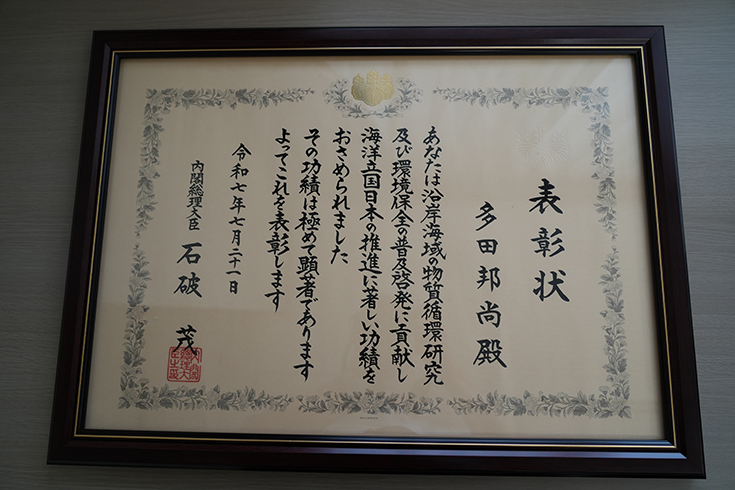 表彰状
多田邦尚殿
あなたは沿岸海域の物質循環研究
及び環境保全の普及啓発に貢献し
海洋立国日本の推進に著しい功績を
おさめられました
その功績は極めて顕著であります
よってこれを表彰します
令和七年七月二十一日
内閣総理大臣 石破 茂